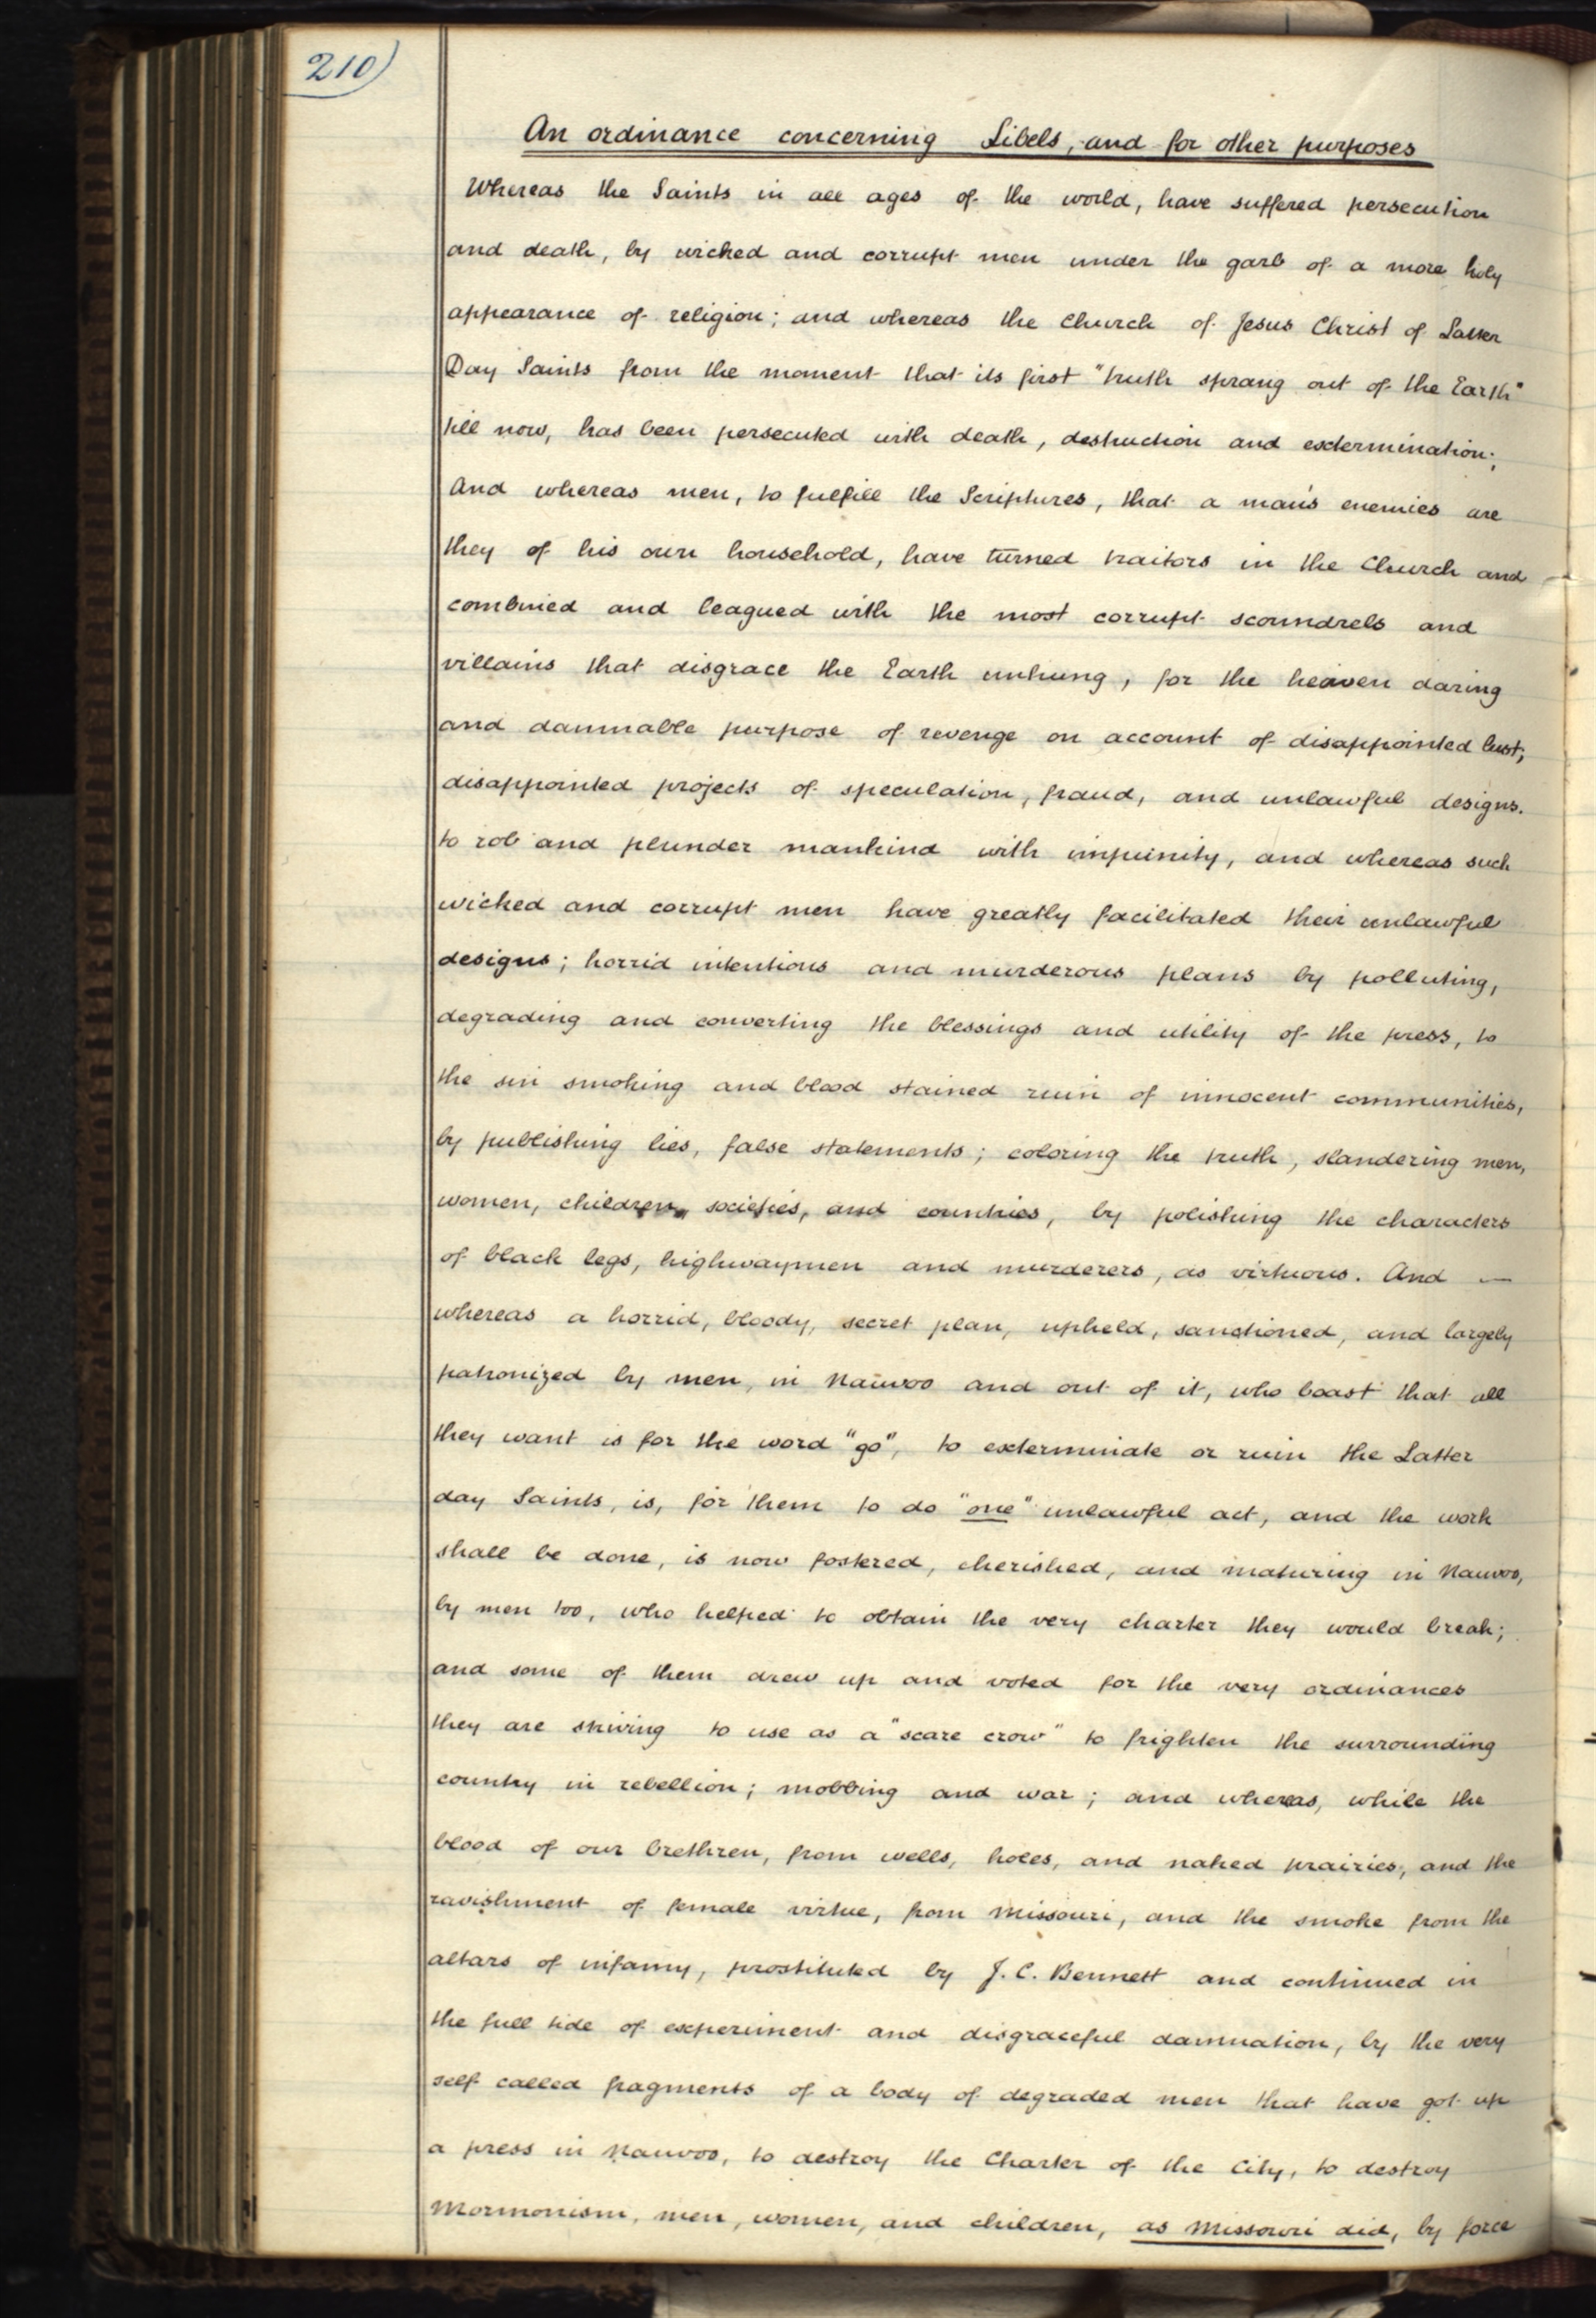 210)
An ordinance concerning Libels, and for other purposes
Whereas the Saints in all ages of the world, have suffered persecution
and death, by wicked and corrupt men under the garb of a more holy
appearance of religion; and whereas the Church of Jesus Christ of Latter
Day Saints from the moment that its first "truth sprang out of the Earth"
till now, has been persecuted with death, destruction and extermination;
And whereas men, to fulfill the Scriptures, that a man's enemies are
they of his own household, have turned traitors in the Church and
combined and leagued with the most corrupt scoundrels and
villains that disgrace the Earth unhung, for the heaven daring
and damnable purpose of revenge on account of disappointed lust;
disappointed projects of speculation, fraud, and unlawful designs.
to rob and plunder mankind with impunity, and whereas such
wicked and corrupt men have greatly facilitated their unlawful
designs; horrid intentions and murderous plans by polluting,
degrading and converting the blessings and utility of the press, to
the sin smoking and blood stained ruin of innocent communities,
by publishing lies, false statements; coloring the truth, slandering men,
women, children, societies, and countries, by polishing the characters
of black legs, highwaymen and murderers, as virtuous. And —
whereas a horrid, bloody, secret plan, upheld, sanctioned, and largely
patronized by men, in Nauvoo and out of it, who boast that all
they want is for the word "go", to exterminate or ruin the Latter
day Saints, is, for them to do "one" unlawful act, and the work
shall be done, is now fostered, cherished, and maturing in Nauvoo,
by men too, who helped to obtain the very charter they would break;
and some of them drew up and voted for the very ordinances
they are striving to use as a "scare crow" to frighten the surrounding
country in rebellion; mobbing and war; and whereas, while the
blood of our brethren, from wells, holes, and naked prairies, and the
ravishment of female virtue, from Missouri, and the smoke from the
altars of infamy, prostituted by J. C. Bennett and continued in
the full tide of experiment and disgraceful damnation, by the very
self called fragments of a body of degraded men that have got up
a press in Nauvoo, to destroy the Charter of the City, to destroy
Mormonism, men, women, and children, as Missouri did, by force